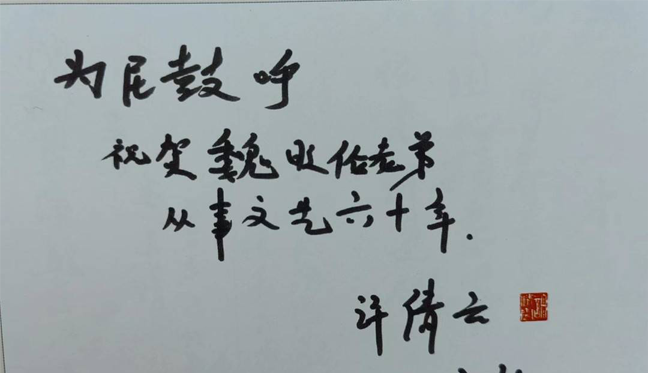 为民鼓呼
祝贺魏明伦老弟
从事文艺六十年.
许倩云